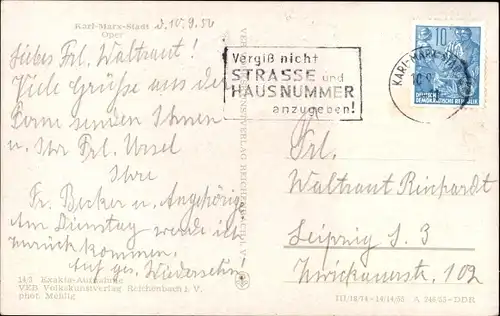 Karl-Marx-Stadt d. 10.9.56
Oper
Liebes Frl. Waltraut!
Viele Grüsse aus der
Ferne senden Ihnen
u. Ihr Frl. Ursel
Ihre
Fr. Becker u. Angehörige
Am Dienstag werde ich
zurückkommen.
Auf ges. Wiedersehn!
14/3 Exakta-Aufnahme
VEB Volkskunstverlag Reichenbach i. V.
phot. Mehlig
Vergiß nicht
STRASSE und
HAUSNUMMER
anzugeben!
KARL-MARX-STADT
10
DEUTSCHE
DEMOKRATISCHE REPUBLIK
Frl.
Waltraut Reinhardt
Leipzig S. 3
Zwickauerstr. 102
III/18/74 - 14/14/55 A 246/55-DDR